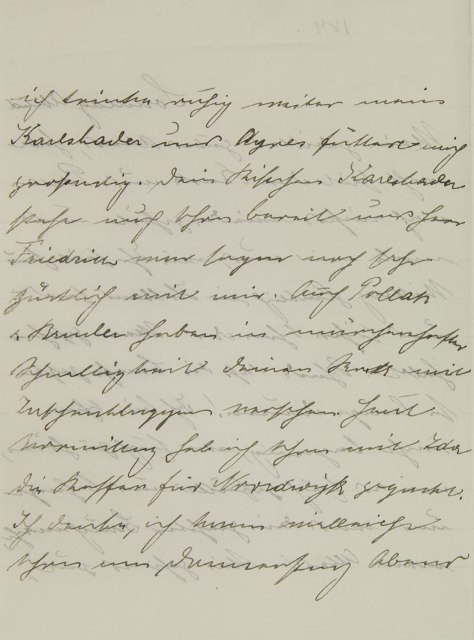 ich trinke ruhig weiter mein
Karlsbader und Agnes füttert mich
großartig. Dein Kistchen Karlsbader
steht auch schon bereit und Herr
Friedrich war sogar noch sehr
zärtlich mit mir. Auch Pollak
u Bruder haben in märchenhafter
Schnelligkeit deinen Rock mit
versehen. Heut
Vormittag hab ich schon mit Ida
die Koffer für Noordwijk gepackt.
Ich denke, ich kann vielleicht
schon am Donnerstag Abend